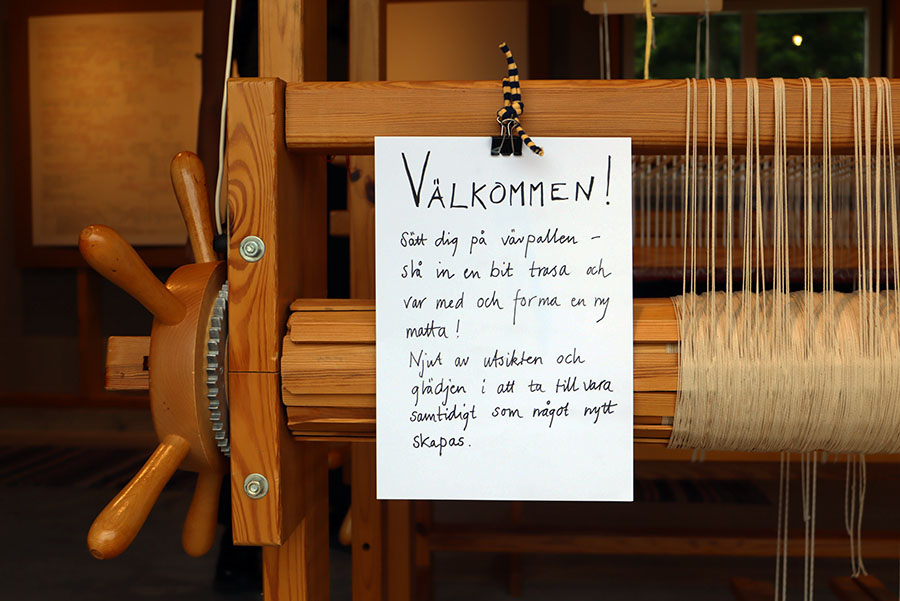 VÄLKOMMEN!
Sätt dig på vävpallen –
slå in en bit trasa och
var med och forma en ny
matta!
Njut av utsikten och
glädjen i att ta tillvara
samtidigt som något nytt
skapas.